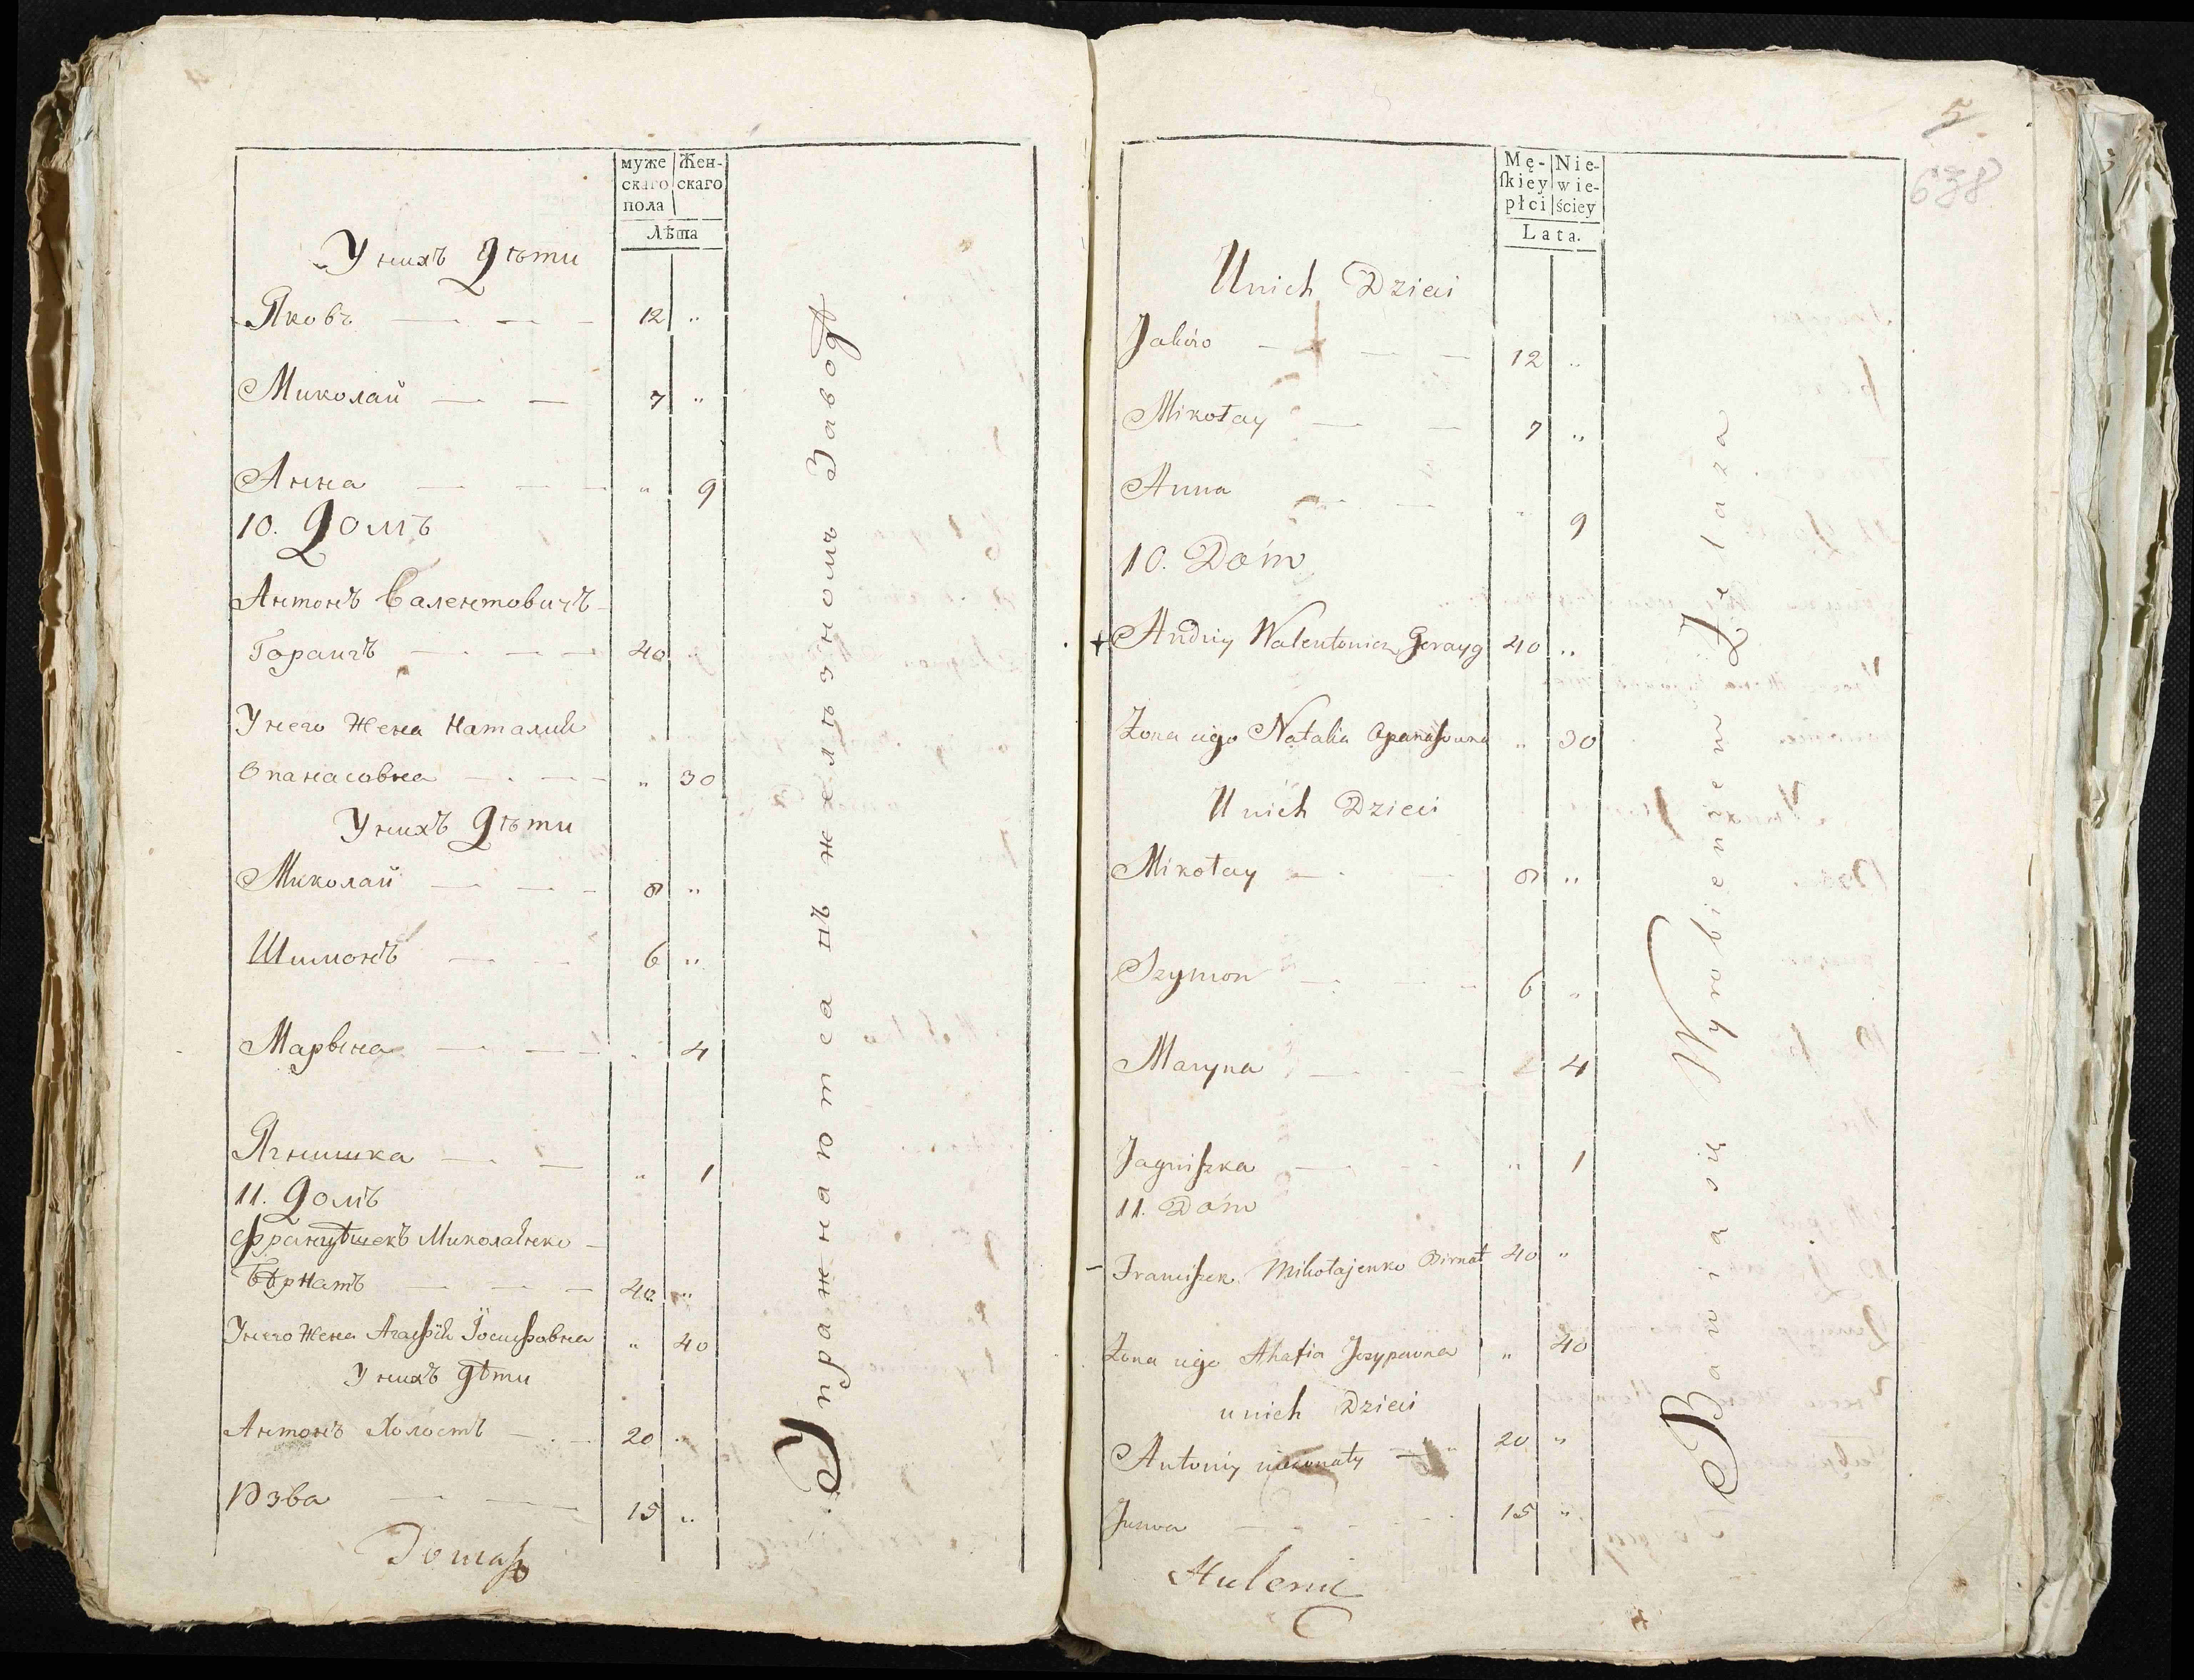 муже Жен-
скаго скаго
пола
Лѣта
У нихъ Дѣти
Яковъ 12 „
Миколай 7 „
Анна „ 9
10. Домъ
Антонъ Валентовичъ
Гораигъ 40 „
У него Жена Наталия
Опанасовна „ 30
У нихъ Дѣти
Миколай 8 „
Шимонъ 6 „
Марына 4
Ягнишка „ 1
11. Домъ
Францѣшекъ Миколаенко
Бѣрнатъ 40 „
У него Жена Агафія Іосифовна „ 40
У нихъ дѣти
Антонъ Холостъ 20 „
Юзва 15 „
Упражнаютса въ желѣзномъ Заводѣ
Tomasz
5
638
Mę- Nie-
skiey wie-
płci ściey
Lata.
U nich Dzieci
Jaków 12 „
Mikołay 7 „
Anna „ 9
10. Dóm
Andrzy Walentowicz Gorayg 40 „
Żona iégo Natalia Opanasowna „ 30
U nich Dzieci
Mikołay 8 „
Szymon 6 „
Maryna 4
Jagniszka „ 1
11. Dóm
Franciszek Mikołajenko Birnat 40 „
Żona iégo Ahafia Jozypowna „ 40
u nich Dzieci
Antoniy nieżonaty 20 „
Juzwa 15 „
Bawią się Wyrobieniem Żelaza